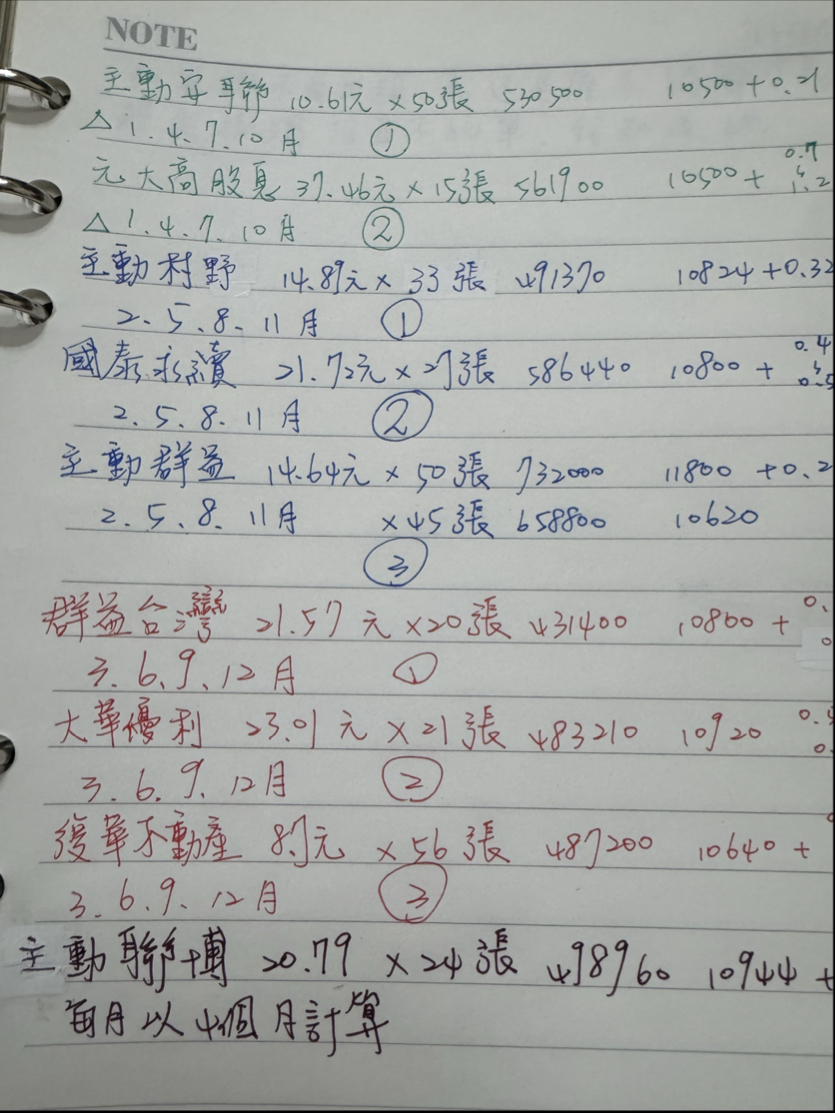 NOTE
主動安聯 10.61元×50張 530500 10500+0.21
△ 1.4.7.10月 ①
元大高股息 37.46元×15張 561900 10500+ 0.7 1.2
△ 1.4.7.10月 ②
主動村野 14.89元×33張 491370 10824+0.32
2.5.8.11月 ①
國泰永續 21.72元×27張 586440 10800+ 0.4 0.5
2.5.8.11月 ②
主動群益 14.64元×50張 732000 11800+0.2
2.5.8.11月 ×45張 658800 10620
③
群益台灣 21.57元×20張 431400 10800+ 0.
3.6.9.12月 ①
大華優利 23.01元×21張 483210 10920
3.6.9.12月 ②
復華不動產 8.7元×56張 487200 10640+
3.6.9.12月 ③
主動聯博 20.79×24張 498960 10944+
每月以4個月計算